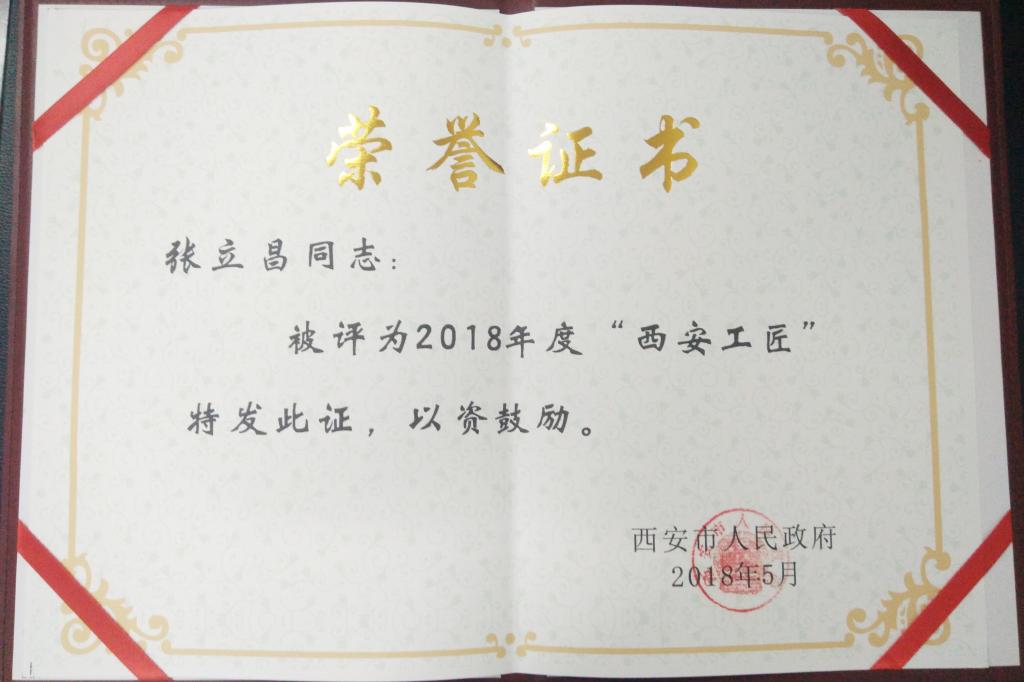 荣誉证书
张立昌同志：
被评为2018年度“西安工匠”
特发此证，以资鼓励。
西安市人民政府
2018年5月